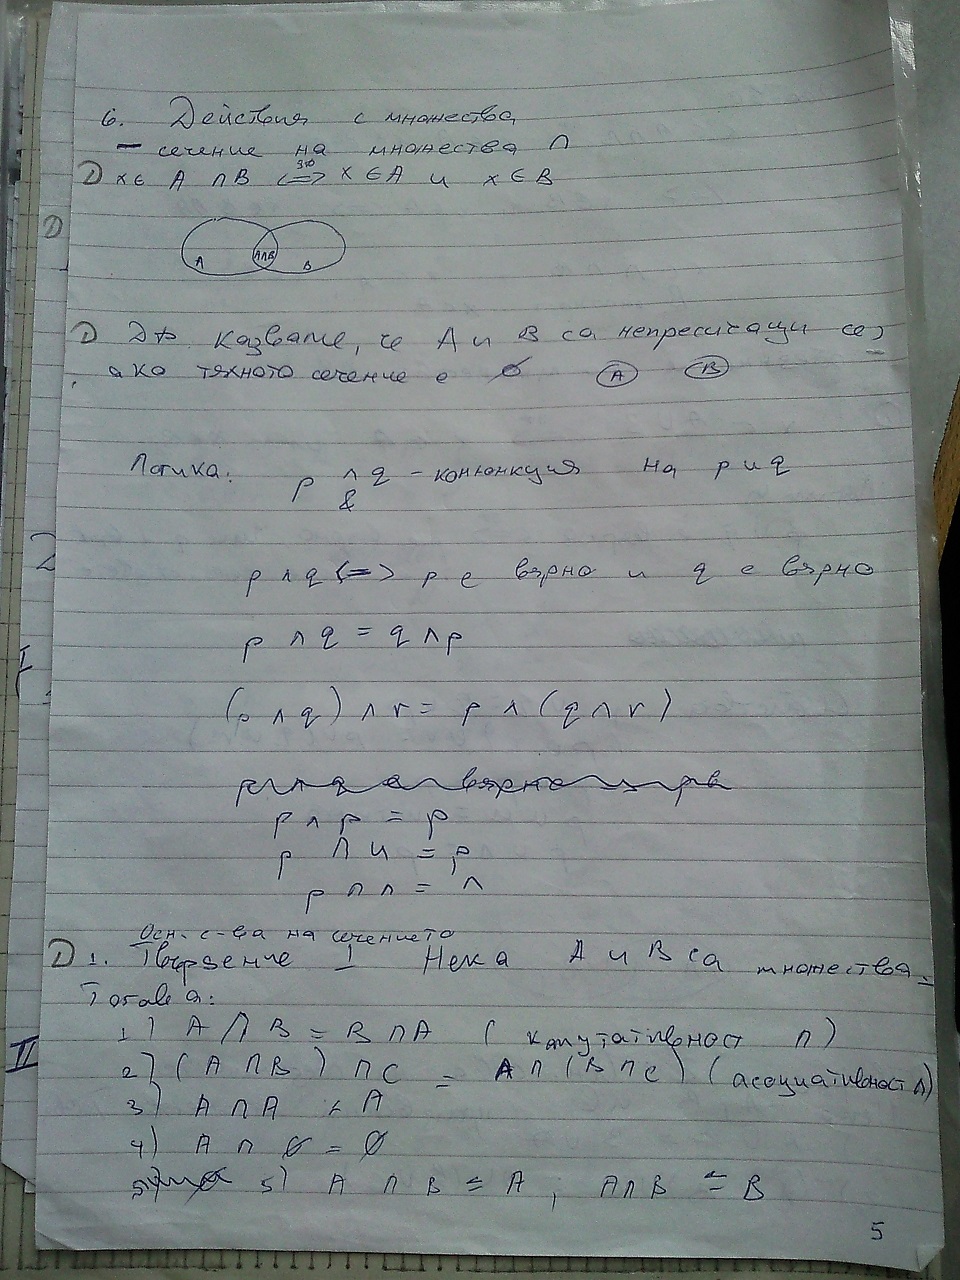 6. Действия с множества
– сечение на множества ∩
D x∈ A ∩ B <=> x ∈ A и x ∈ B
A A∩B B
D
D Деф казваме, че A и B са непресичащи се,
ако тяхното сечение е ∅ A B
Логика: p ∧ q – конюнкция на p и q
&
p ∧ q <=> p е вярно и q е вярно
p ∧ q = q ∧ p
(p ∧ q) ∧ r = p ∧ (q ∧ r)
p ∧ q е вярно
p ∧ p = p
p ∧ и = p
p ∩ л = л
Осн. с-ва на сечението
D 1. Твърдение 1 Нека A и B са множества.
Тогава:
1) A ∩ B = B ∩ A ( комутативност ∩)
2) (A ∩ B) ∩ C = A ∩ (B ∩ C) (асоциативност ∩)
3) A ∩ A = A
4) A ∩ ∅ = ∅
5) A ∩ B ⊆ A ; A∩B ⊆ B
5